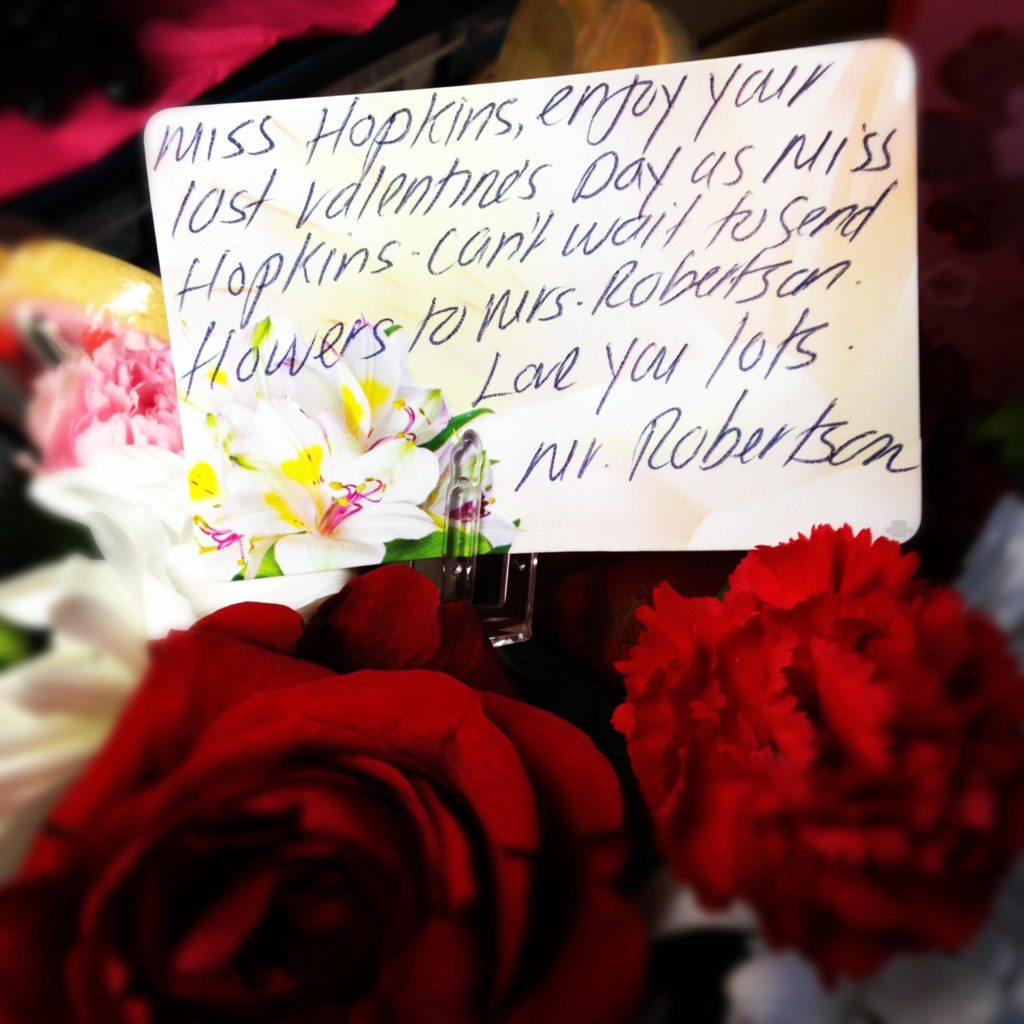 Miss Hopkins, enjoy your
last Valentine's Day as Miss
Hopkins - can't wait to send
flowers to Mrs. Robertson.
Love you lots.
Mr. Robertson